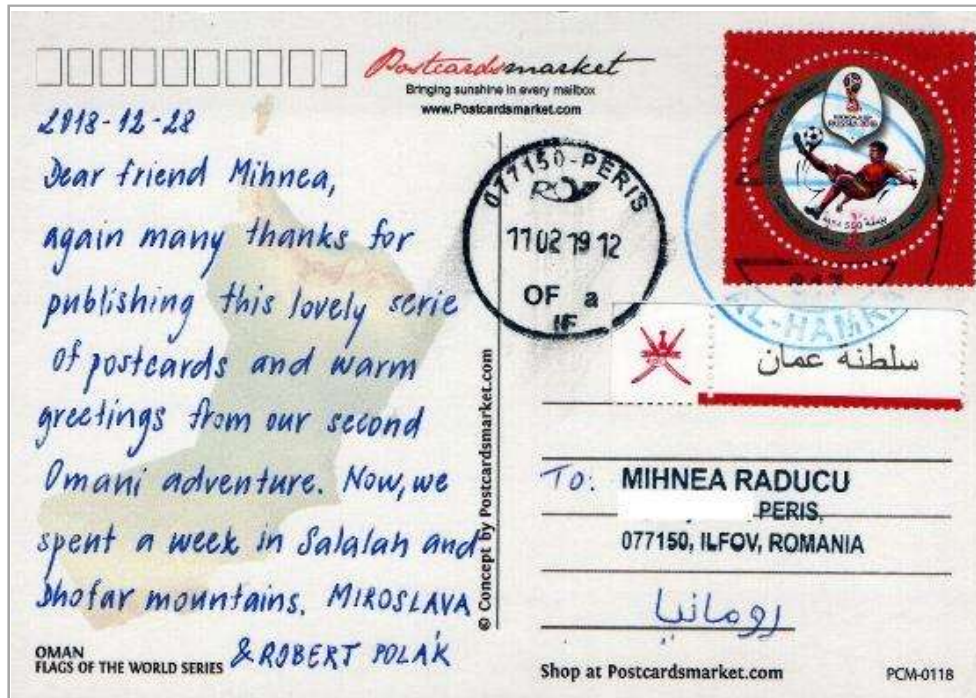 Postcardsmarket
Bringing sunshine in every mailbox
www.Postcardsmarket.com
2018-12-28
Dear friend Mihnea,
again many thanks for
publishing this lovely serie
of postcards and warm
greetings from our second
Omani adventure. Now, we
spent a week in Salalah and
Dhofar mountains. MIROSLAVA
& ROBERT POLÁK
OMAN
FLAGS OF THE WORLD SERIES
© Concept by Postcardsmarket.com
077150-PERIS
11 02 19 12
OF a
IF
RUSSIA 2018
AL-HAMRA
سلطنة عمان
To: MIHNEA RADUCU
PERIS,
077150, ILFOV, ROMANIA
رومانيا
Shop at Postcardsmarket.com
PCM-0118